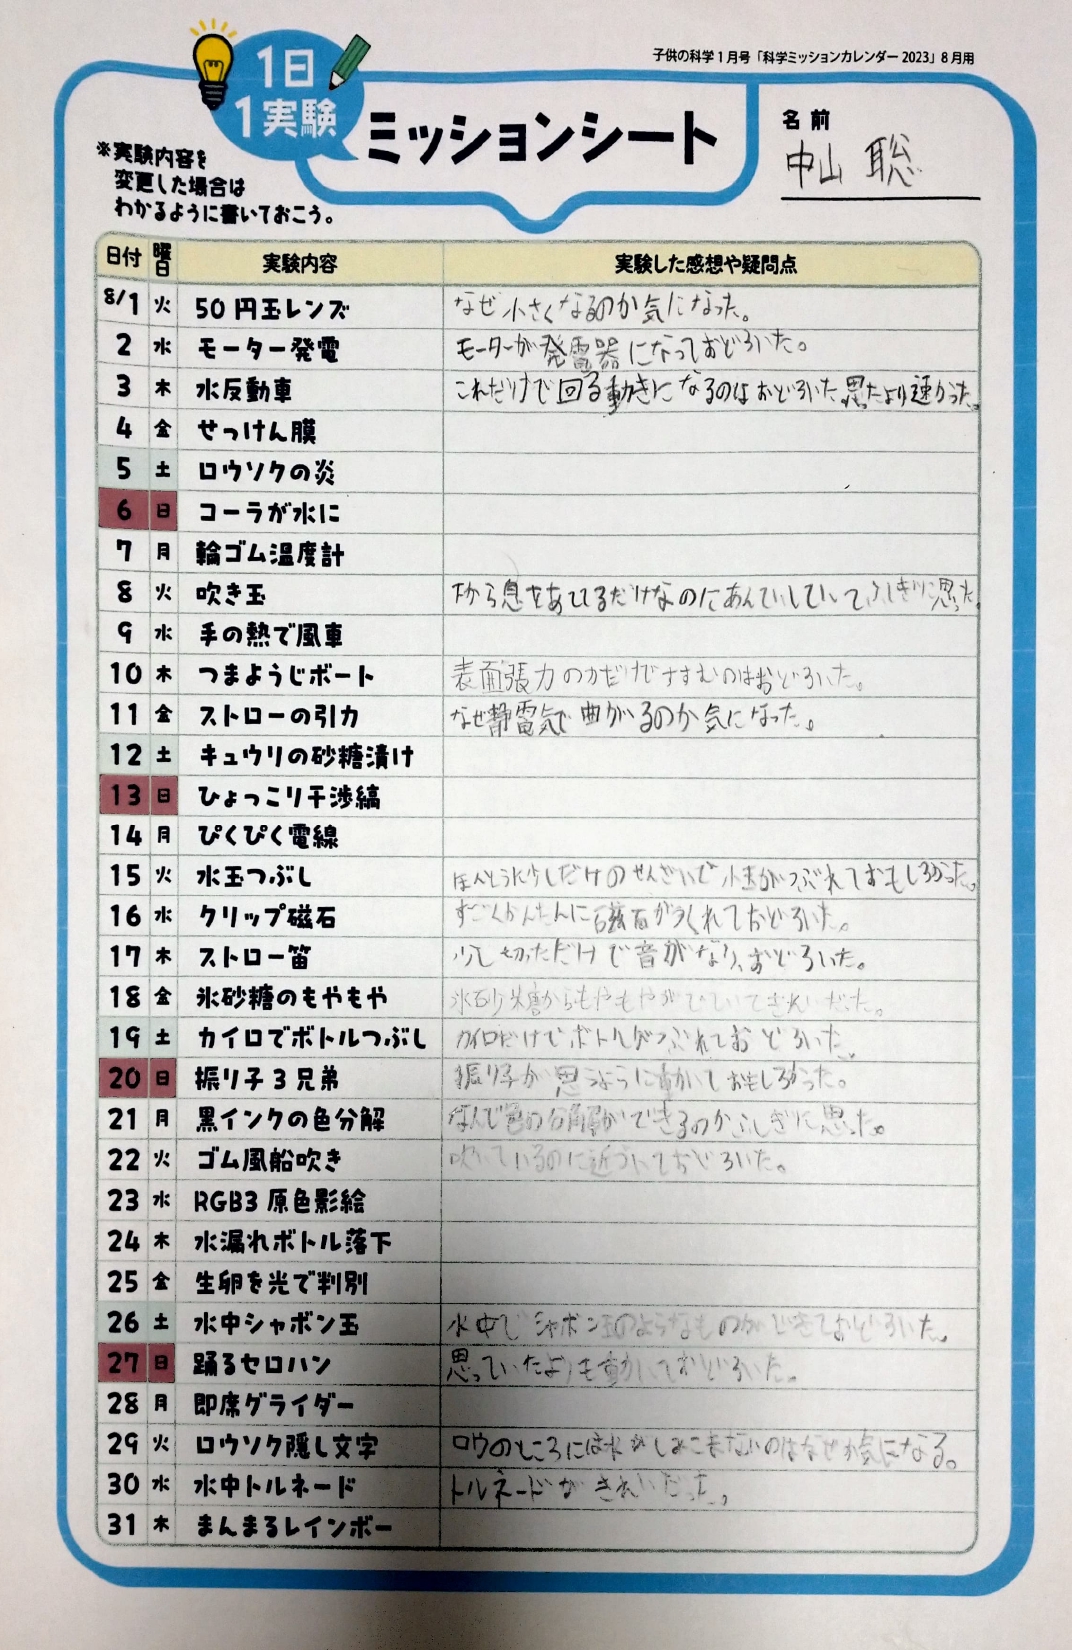 子供の科学1月号「科学ミッションカレンダー2023」8月用
1日
1実験
ミッションシート
名前
中山 聡
※実験内容を
変更した場合は
わかるように書いておこう。
日付 曜日 実験内容 実験した感想や疑問点
8/1 火 50円玉レンズ なぜ小さくなるのか気になった。
2 水 モーター発電 モーターが発電器になっておどろいた。
3 木 水反動車 これだけで回る動きになるのはおどろいた。思たより速かった。
4 金 せっけん膜
5 土 ロウソクの炎
6 日 コーラが水に
7 月 輪ゴム温度計
8 火 吹き玉 下から息をあびるだけなのにあんていしていてふしぎに思った。
9 水 手の熱で風車
10 木 つまようじボート 表面張力の力だけですすむのはおどろいた。
11 金 ストローの引力 なぜ静電気で曲がるのか気になった。
12 土 キュウリの砂糖漬け
13 日 ひょっこり干渉縞
14 月 ぴくぴく電線
15 火 水玉つぶし ほんとうに少しだけのせんざいで水玉がつぶれておもしろかった。
16 水 クリップ磁石 すごくかんたんに磁石がつくれておどろいた。
17 木 ストロー笛 少し切っただけで音がなり、おどろいた。
18 金 氷砂糖のもやもや 氷砂糖からもやもやがでていてきれいだった。
19 土 カイロでボトルつぶし カイロだけでボトルがつぶれておどろいた。
20 日 振り子3兄弟 振り子が思うように動いておもしろかった。
21 月 黒インクの色分解 なんで色の分解ができるのかふしぎに思った。
22 火 ゴム風船吹き 吹いているのに近づいておどろいた。
23 水 RGB3原色影絵
24 木 水漏れボトル落下
25 金 生卵を光で判別
26 土 水中シャボン玉 水中でシャボン玉のようなものができておどろいた。
27 日 踊るセロハン 思っていたよりも動いておどろいた。
28 月 即席グライダー
29 火 ロウソク隠し文字 ロウのところには水がしみこまないのはなぜか気になる。
30 水 水中トルネード トルネードがきれいだった。
31 木 まんまるレインボー